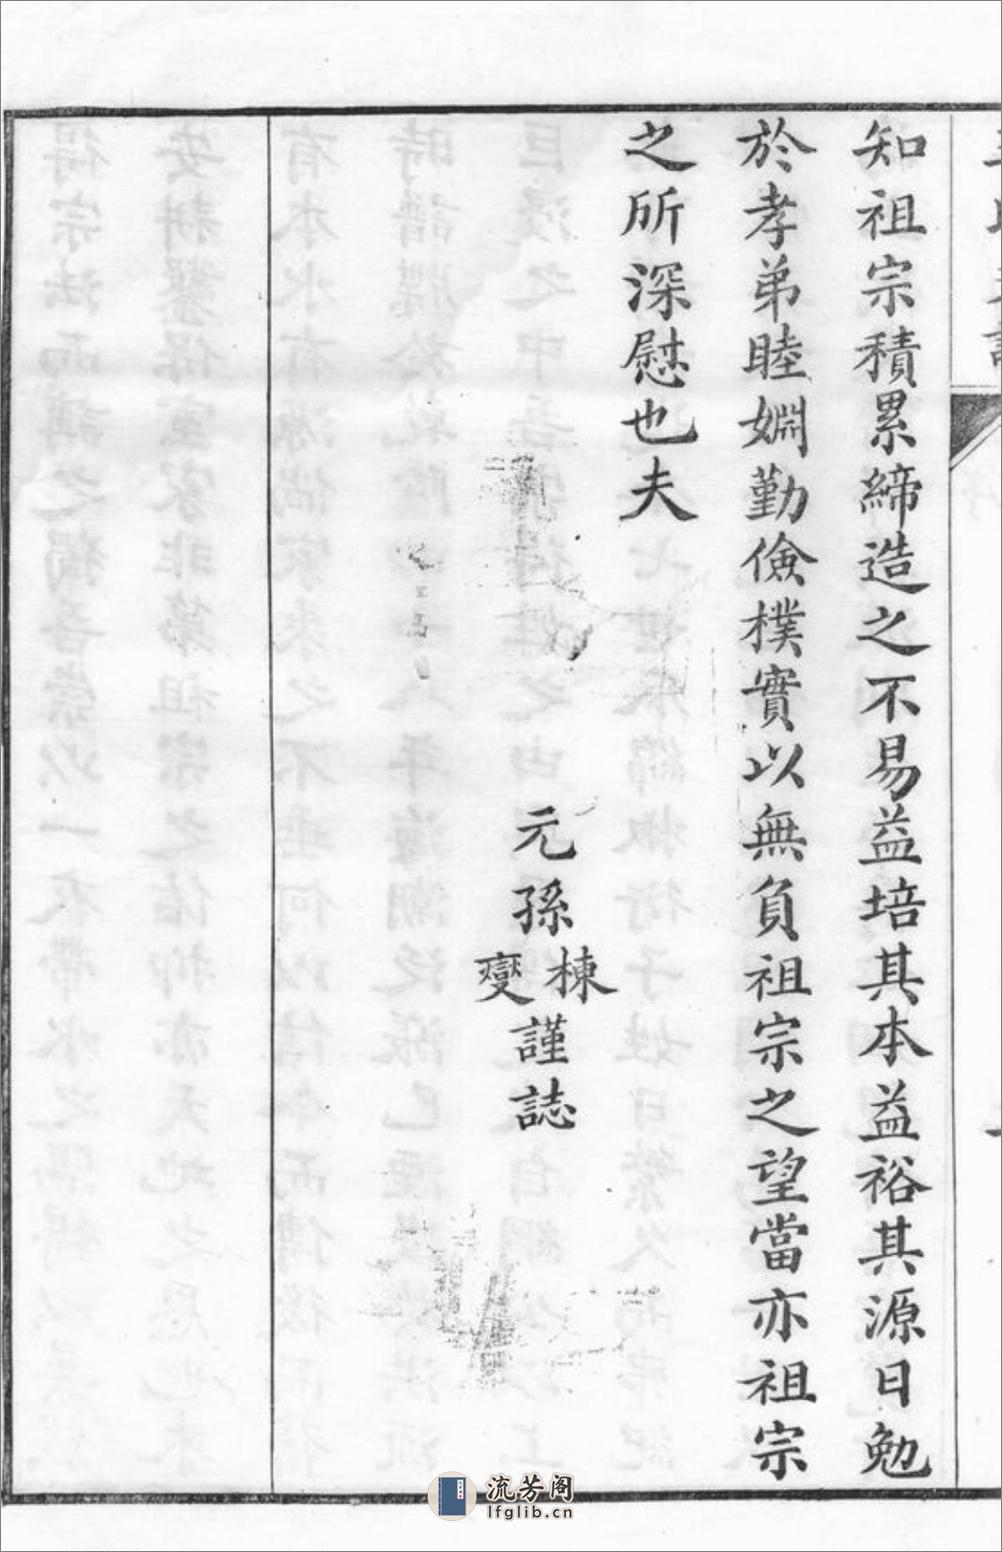 知祖宗積累締造之不易益培其本益裕其源日勉
於孝弟睦婣勤儉樸實以無負祖宗之望當亦祖宗
之所深慰也夫
元孫棟
燮謹誌
流芳阁
lfglib.cn